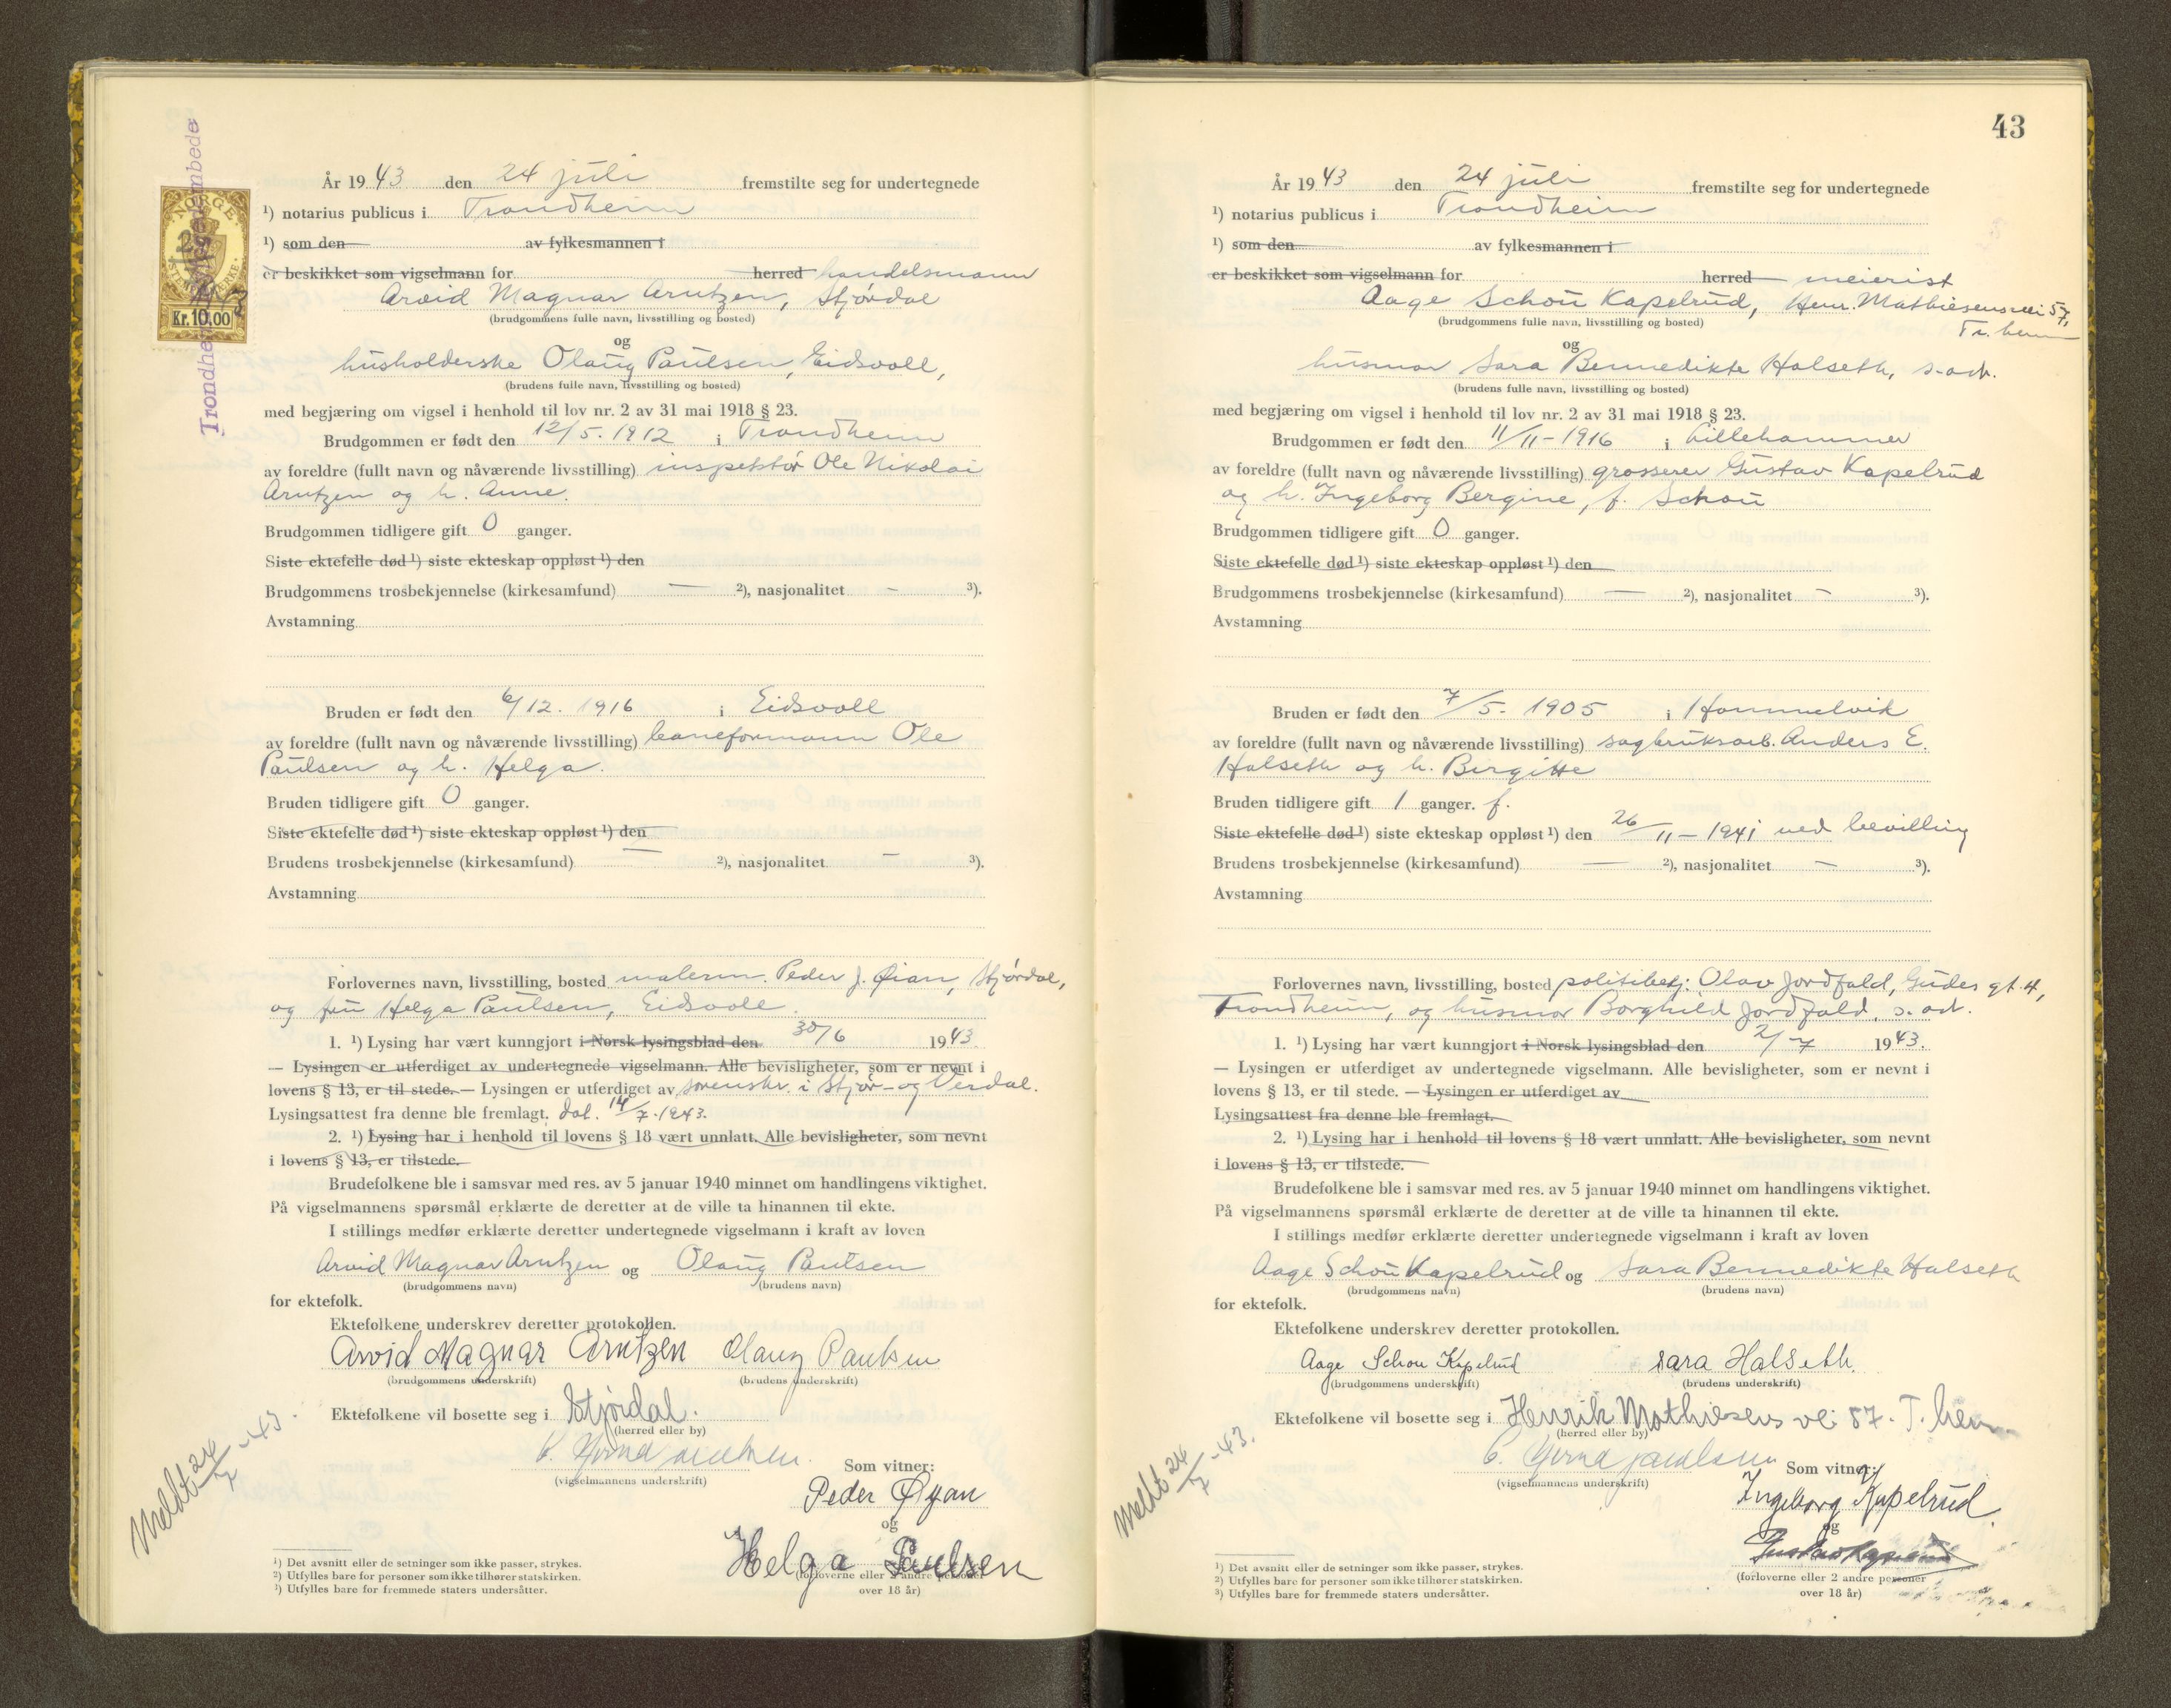 År 1943 den 24 juli fremstilte seg for undertegnede
¹) notarius publicus i Trondheim
¹) som den av fylkesmannen i
er beskikket som vigselmann for herred handelsmann
Arvid Magnar Arntzen, Stjørdal
(brudgommens fulle navn, livsstilling og bosted)
og
husholderske Olaug Paulsen, Eidsvoll,
(brudens fulle navn, livsstilling og bosted)
med begjæring om vigsel i henhold til lov nr. 2 av 31 mai 1918 § 23.
Brudgommen er født den 12/5. 1912 i Trondheim
av foreldre (fullt navn og nåværende livsstilling) inspektør Ole Nikolai
Arntzen og h. Anne.
Brudgommen tidligere gift 0 ganger.
Siste ektefelle død ¹) siste ekteskap oppløst ¹) den
Brudgommens trosbekjennelse (kirkesamfund) — ²), nasjonalitet - ³).
Avstamning
Bruden er født den 6/12. 1916 i Eidsvoll
av foreldre (fullt navn og nåværende livsstilling) baneformann Ole
Paulsen og h. Helga.
Bruden tidligere gift 0 ganger.
Siste ektefelle død ¹) siste ekteskap oppløst ¹) den
Brudens trosbekjennelse (kirkesamfund) — ²), nasjonalitet — ³).
Avstamning
Forlovernes navn, livsstilling, bosted malerm. Peder J. Øian, Stjørdal,
og fru Helga Paulsen, Eidsvoll.
1. ¹) Lysing har vært kunngjort i Norsk lysingsblad den 30/6 1943
— Lysingen er utferdiget av undertegnede vigselmann. Alle bevisligheter, som er nevnt i
lovens § 13, er til stede. — Lysingen er utferdiget av sorenskr. i Stjør- og Verdal.
Lysingsattest fra denne ble fremlagt. dat. 14/7. 1943.
2. ¹) Lysing har i henhold til lovens § 18 vært unnlatt. Alle bevisligheter, som nevnt
i lovens § 13, er tilstede.
Brudefolkene ble i samsvar med res. av 5 januar 1940 minnet om handlingens viktighet.
På vigselmannens spørsmål erklærte de deretter at de ville ta hinannen til ekte.
I stillings medfør erklærte deretter undertegnede vigselmann i kraft av loven
Arvid Magnar Arntzen og Olaug Paulsen
(brudgommens navn) (brudens navn)
for ektefolk.
Ektefolkene underskrev deretter protokollen.
Arvid Magnar Arntzen Olaug Paulsen
(brudgommens underskrift) (brudens underskrift)
Ektefolkene vil bosette seg i Stjørdal.
(herred eller by)
(vigselmannens underskrift)
Som vitner:
Peder Øyan
og
Helga Paulsen
(forloverne eller 2 andre personer
over 18 år)
Meldt 24/7 -43.
¹) Det avsnitt eller de setninger som ikke passer, strykes.
²) Utfylles bare for personer som ikke tilhører statskirken.
³) Utfylles bare for fremmede staters undersåtter.
NORGE
Kr. 10,00
43
År 1943 den 24 juli fremstilte seg for undertegnede
¹) notarius publicus i Trondheim
¹) som den av fylkesmannen i
er beskikket som vigselmann for herred meierist
Aage Schou Kapelrud, Henr. Mathiesens vei 57,
Tr.heim
(brudgommens fulle navn, livsstilling og bosted)
og
husmor Sara Bennedikte Halseth, s. adr.
(brudens fulle navn, livsstilling og bosted)
med begjæring om vigsel i henhold til lov nr. 2 av 31 mai 1918 § 23.
Brudgommen er født den 11/11 - 1916 i Lillehammer
av foreldre (fullt navn og nåværende livsstilling) grosserer Gustav Kapelrud
og h. Ingeborg Bergine, f. Schou
Brudgommen tidligere gift 0 ganger.
Siste ektefelle død ¹) siste ekteskap oppløst ¹) den
Brudgommens trosbekjennelse (kirkesamfund) — ²), nasjonalitet - ³).
Avstamning
Bruden er født den 7/5. 1905 i Hommelvik
av foreldre (fullt navn og nåværende livsstilling) sagbruksarb. Anders E.
Halseth og h. Birgitte
Bruden tidligere gift 1 ganger. f.
Siste ektefelle død ¹) siste ekteskap oppløst ¹) den 26/11 - 1941 ved bevilling
Brudens trosbekjennelse (kirkesamfund) — ²), nasjonalitet — ³).
Avstamning
Forlovernes navn, livsstilling, bosted politibetj. Olav Jordfald, Gudes gt. 4,
Trondheim, og husmor Borghild Jordfald, s. adr.
1. ¹) Lysing har vært kunngjort i Norsk lysingsblad den 2/7 1943.
— Lysingen er utferdiget av undertegnede vigselmann. Alle bevisligheter, som er nevnt i
lovens § 13, er til stede. — Lysingen er utferdiget av
Lysingsattest fra denne ble fremlagt.
2. ¹) Lysing har i henhold til lovens § 18 vært unnlatt. Alle bevisligheter, som nevnt
i lovens § 13, er tilstede.
Brudefolkene ble i samsvar med res. av 5 januar 1940 minnet om handlingens viktighet.
På vigselmannens spørsmål erklærte de deretter at de ville ta hinannen til ekte.
I stillings medfør erklærte deretter undertegnede vigselmann i kraft av loven
Aage Schou Kapelrud og Sara Bennedikte Halseth
(brudgommens navn) (brudens navn)
for ektefolk.
Ektefolkene underskrev deretter protokollen.
Aage Schou Kapelrud Sara Halseth.
(brudgommens underskrift) (brudens underskrift)
Ektefolkene vil bosette seg i Henrik Mathiesens vei 57. T.heim
(herred eller by)
(vigselmannens underskrift)
Som vitner:
Ingeborg Kapelrud
og
Gustav Kapelrud
(forloverne eller 2 andre personer
over 18 år)
Meldt 24/7 -43.
¹) Det avsnitt eller de setninger som ikke passer, strykes.
²) Utfylles bare for personer som ikke tilhører statskirken.
³) Utfylles bare for fremmede staters undersåtter.